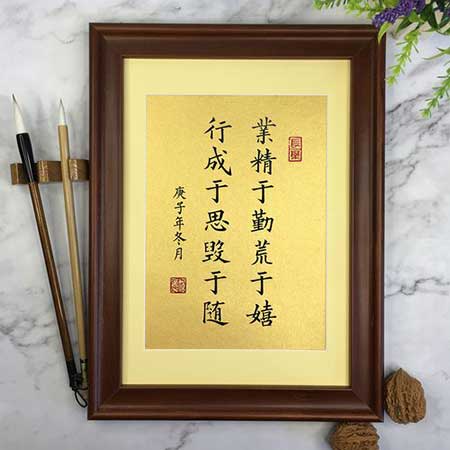 業精于勤荒于嬉
行成于思毀于随
庚子年冬月